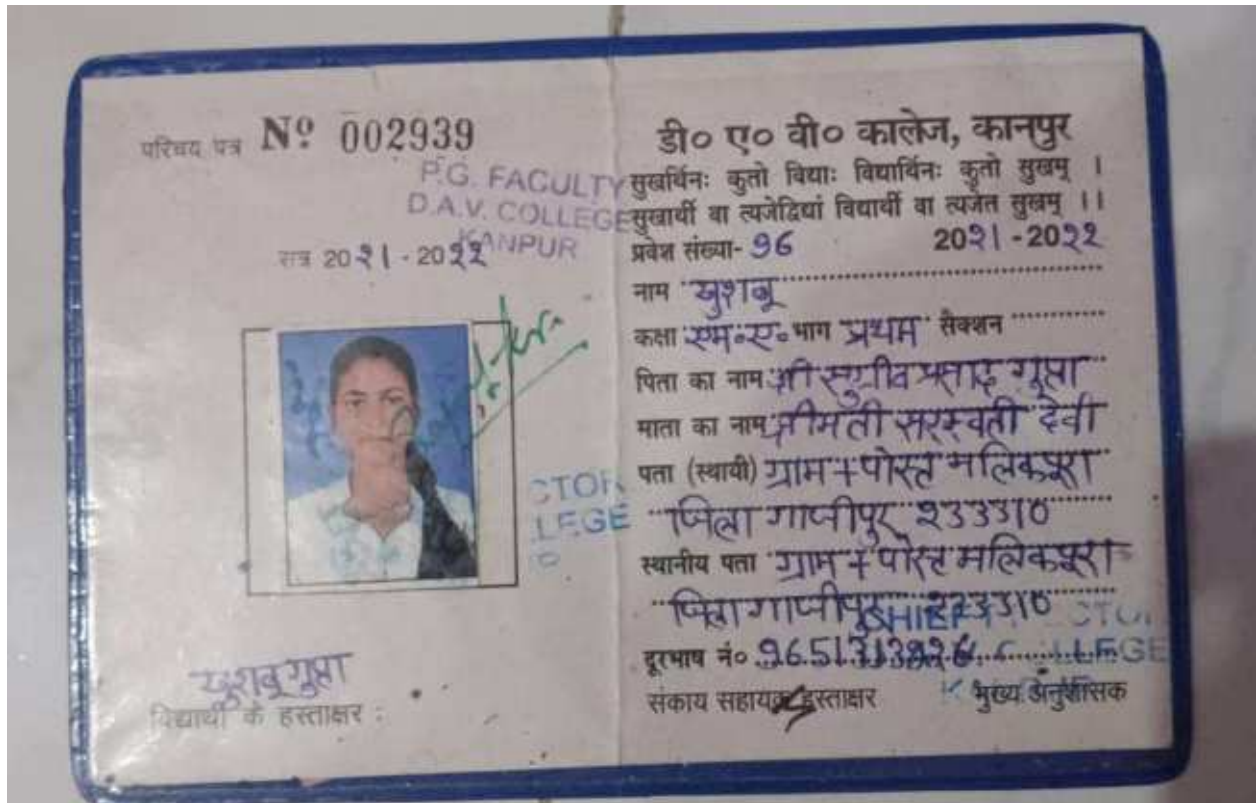 परिचय पत्र Nº 002939
P.G. FACULTY
D.A.V. COLLEGE
KANPUR
सत्र 20२1 - 20२२
CTOR
LLEGE
खुशबू गुप्ता
विद्यार्थी के हस्ताक्षर :
डी० ए० वी० कालेज, कानपुर
सुखर्विनः कुतो विद्याः विद्यार्विनः कुतो सुखम् ।
सुखार्यी वा त्यजेद्विद्यां विद्यार्थी वा त्यजेत सुखम् ।।
प्रवेश संख्या- 96 20२1 - 20२२
नाम खुशबू
कक्षा एम०ए० भाग प्रथम सैक्शन
पिता का नाम श्री सुग्रीव प्रसाद गुप्ता
माता का नाम श्रीमती सरस्वती देवी
पता (स्थायी) ग्राम + पोस्ट मलिकपूरा
जिला गाजीपुर २33310
स्थानीय पता ग्राम + पोस्ट मलिकपूरा
जिला गाजीपुर २33310
दूरभाष नं०
संकाय सहायक हस्ताक्षर मुख्य अनुशासक